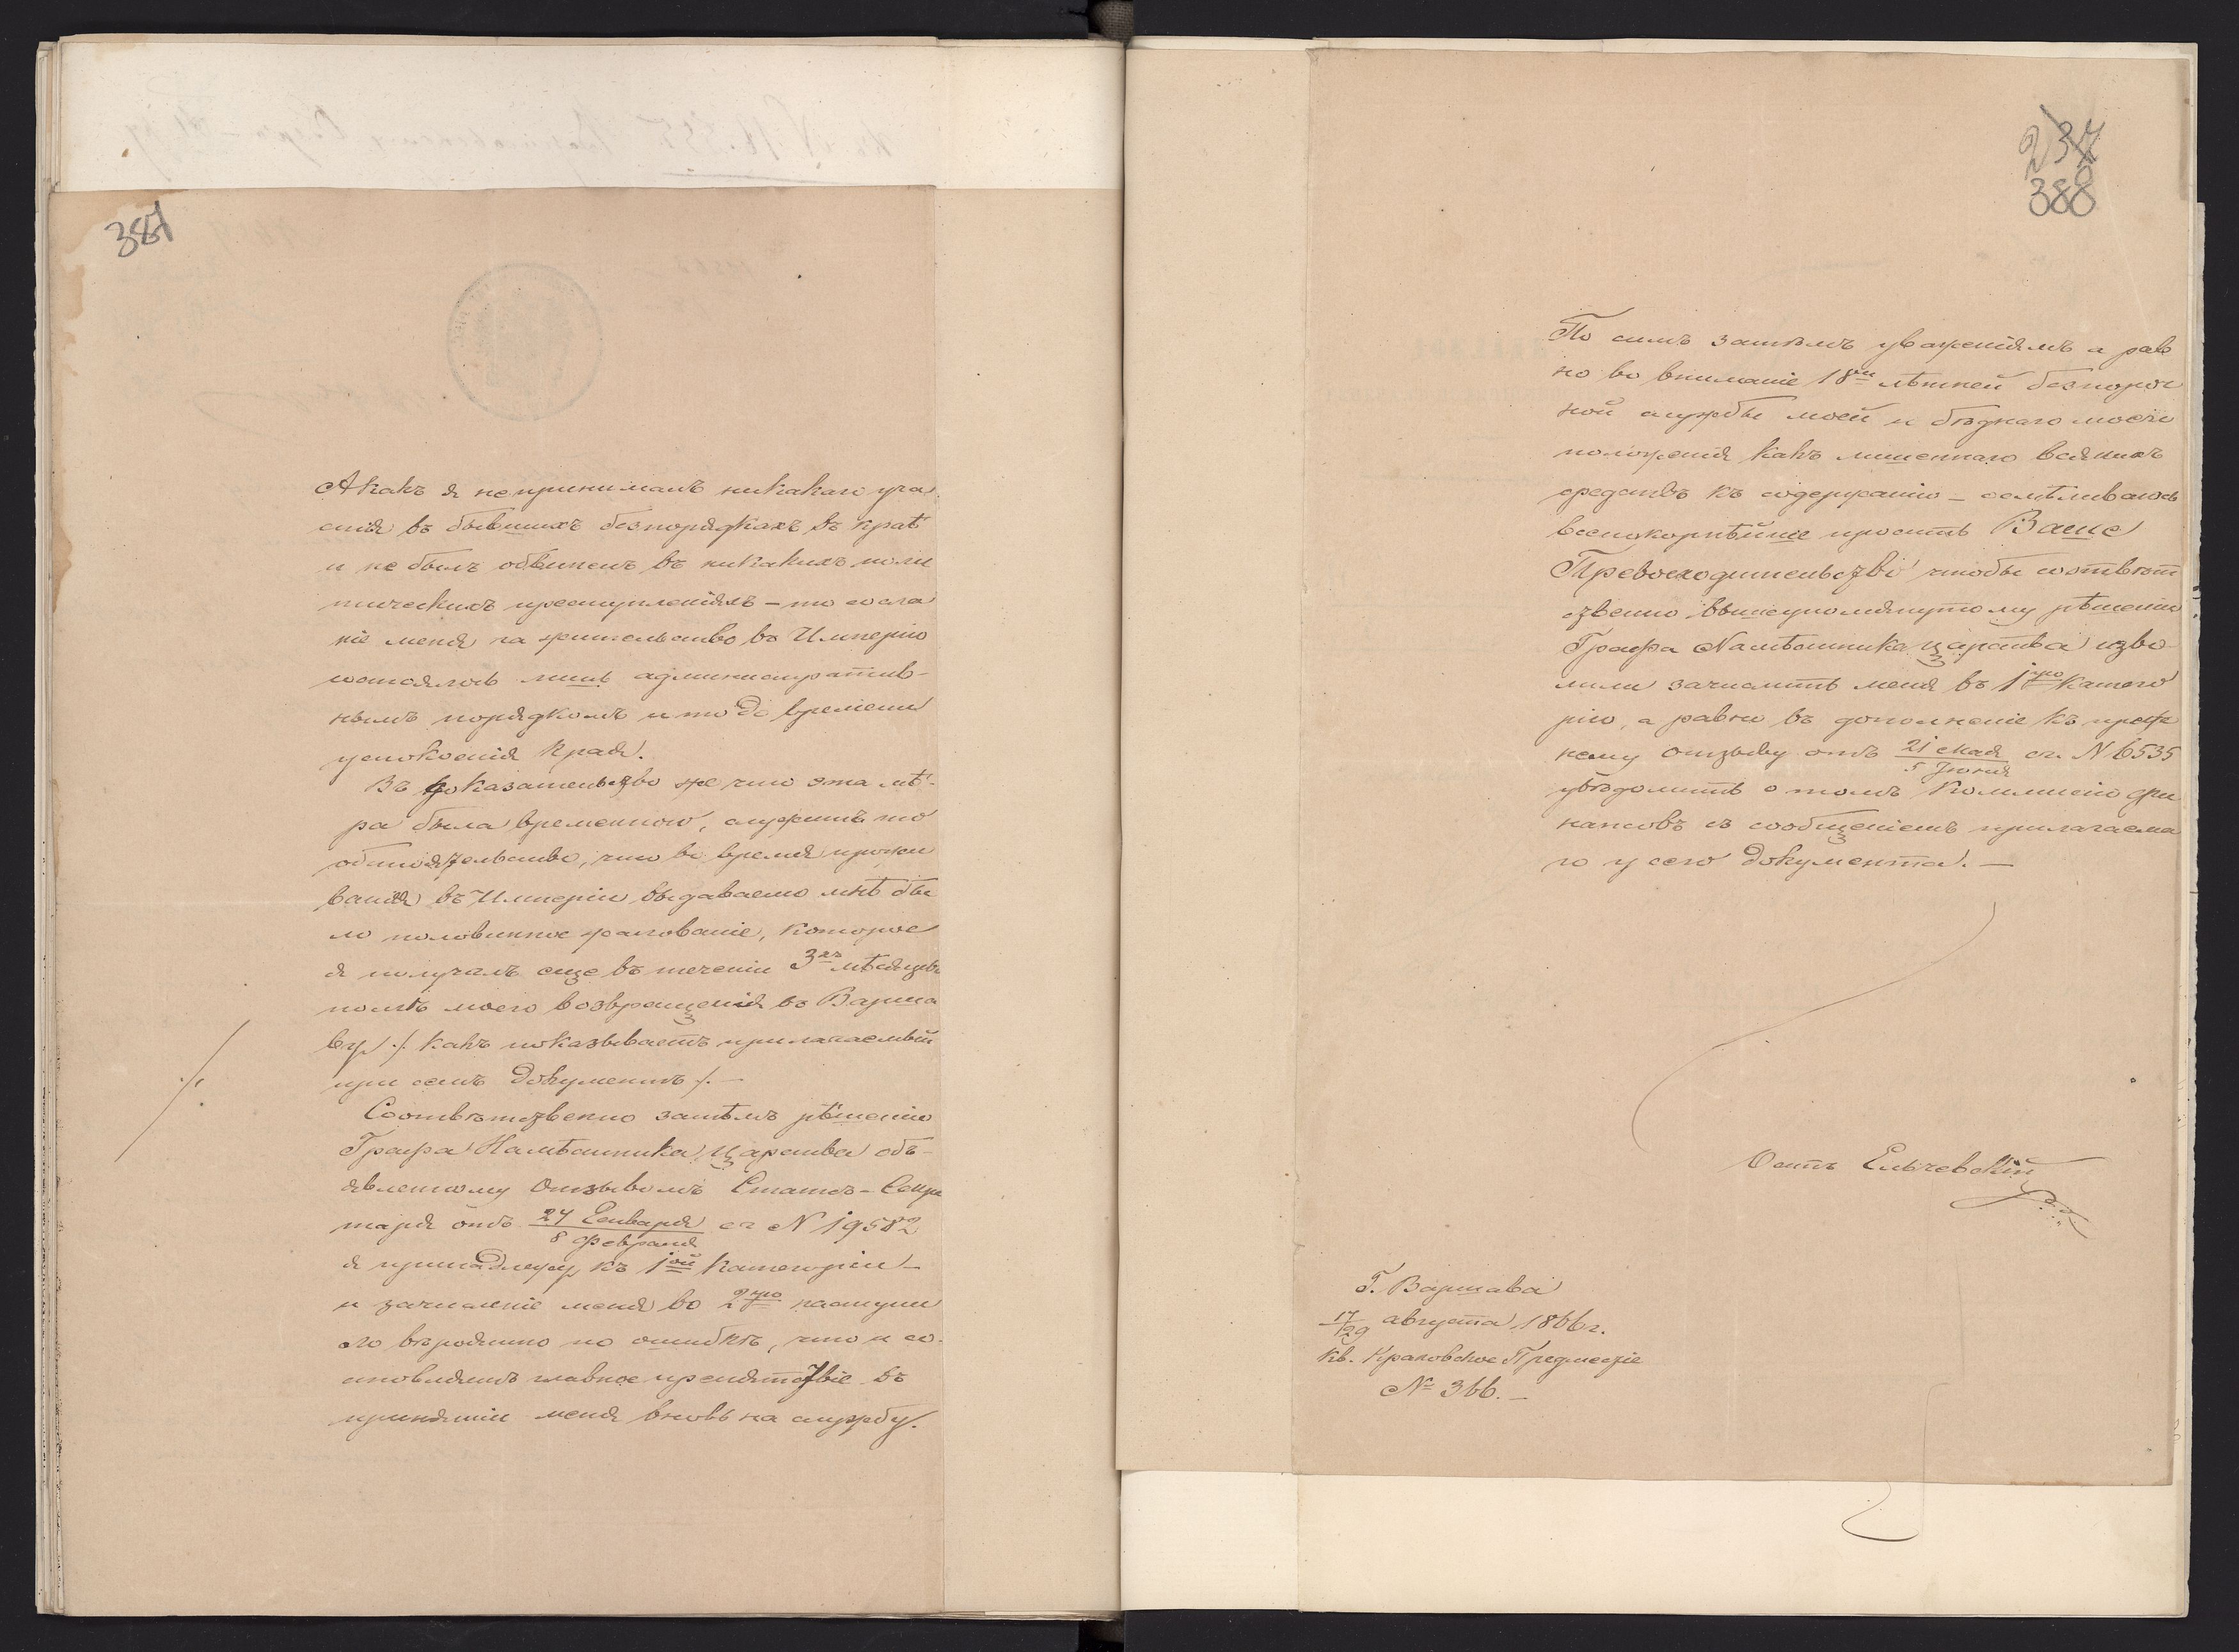 387
А какъ я не принималъ никакаго уча
стія въ бывшихъ безпорядкахъ въ краѣ
и не былъ обвиненъ въ никакихъ поли
тическихъ преступленіяхъ – то сосла
ніе меня на жительство въ Имперію
состоялось лишь административ-
нымъ порядкомъ и то до времени
успокоенія Края.
Въ доказательство же что эта мѣ-
ра была временною, служитъ то
обстоятельство, что во время прожи
ванія въ Имперіи выдаваемо мнѣ бы
ло половинное жалованіе, которое
я получалъ еще въ теченіи 3хъ мѣсяцевъ
послѣ моего возвращенія въ Варша
ву ./. какъ показываетъ прилагаемый
при семъ документъ /. —
./.
Соотвѣтственно затѣмъ рѣшенію
Графа Намѣстника Царства объ-
явленному Отзывомъ Статсъ-Секре
таря отъ 27 Января / 8 Февраля за N 19582
я принадлежу къ 1ой Категоріи –
и зачисленіе меня во 2ую наступи
ло вѣроятно по ошибкѣ, что и со-
ставляетъ главное препятствіе въ
принятіи меня вновь на службу.
237
388
По симъ затѣмъ уваженіямъ а рав
но во вниманіе 18ти лѣтней безпороч
ной службы моей и бѣднаго моего
положенія какъ лишеннаго всякихъ
средствъ къ содержанію – осмѣливаюсь
всепокорнѣйше просить Ваше
Превосходительство чтобы соотвѣт
ственно вышеупомянутому рѣшенію
Графа Намѣстника Царства изво
лили зачислить меня въ 1ую Катего
рію, а равно въ дополненіе къ преж
нему отзыву отъ 21 Мая / 5 Іюня за N 6535
увѣдомить о томъ Коммисію Фи
нансовъ съ сообщеніемъ прилагаема
го у сего документа. —
Осипъ Ельчевскій
Г. Варшава
17/29 августа 1866 г.
Кв. Краковское Предместіе
№ 366. —